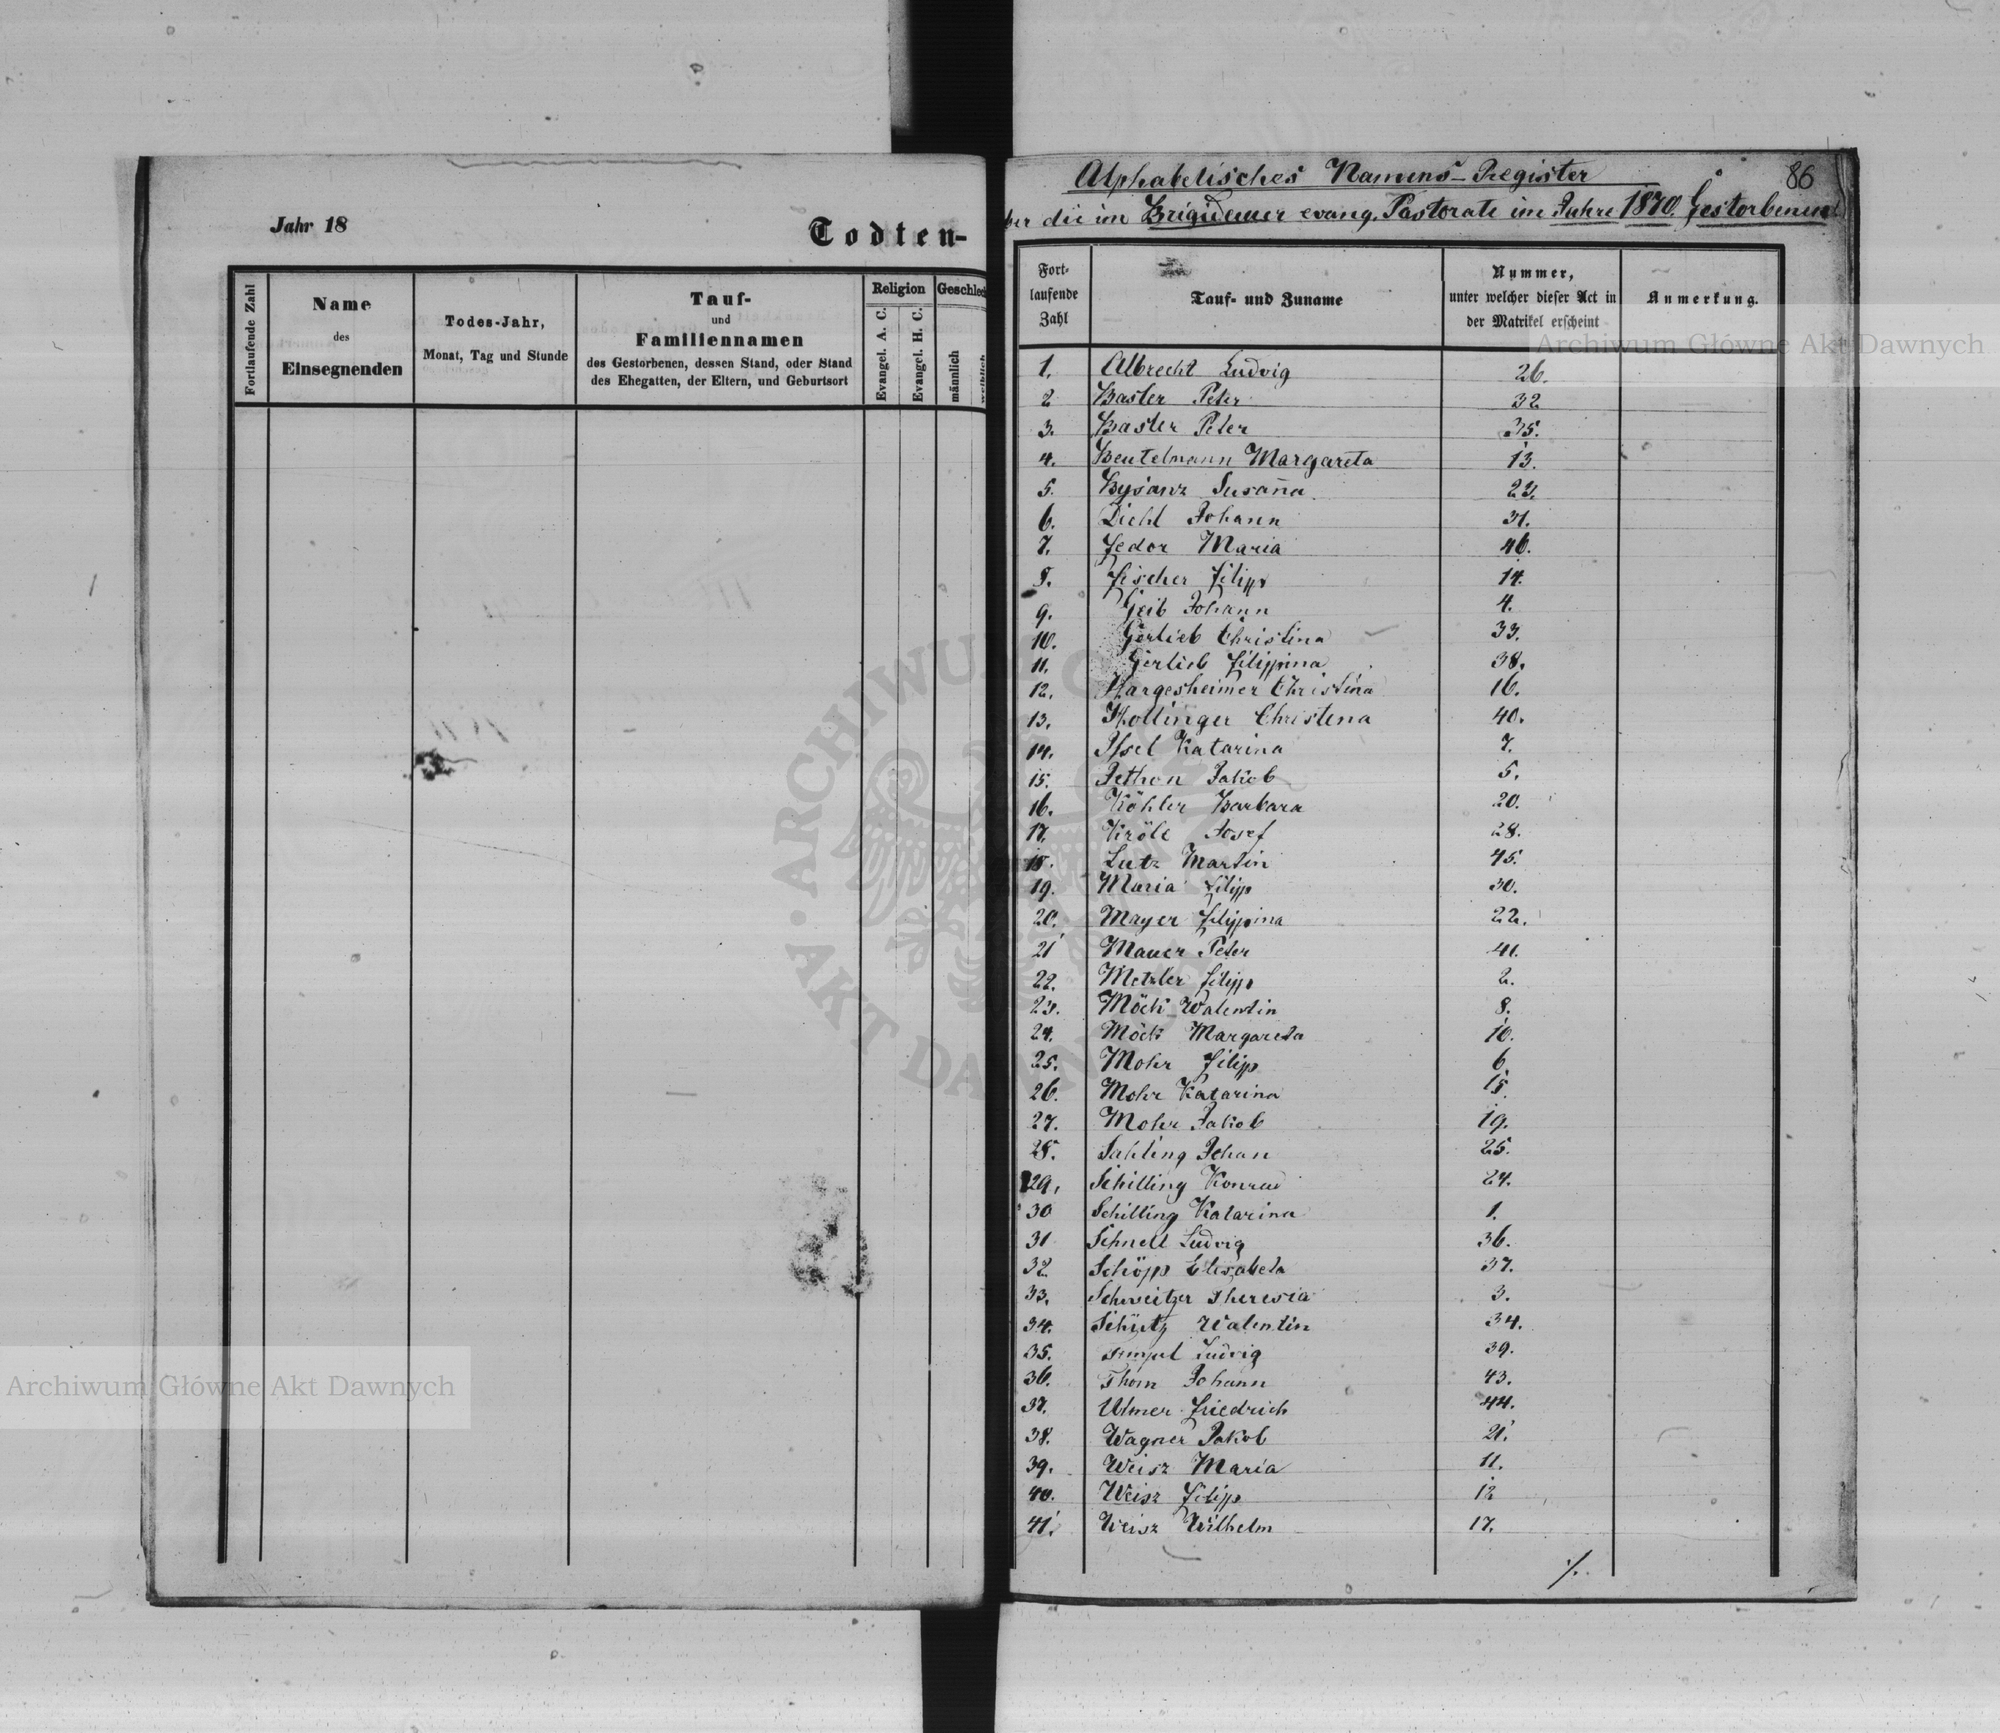 Jahr 18
Todten-
Fortlaufende Zahl
Name
des
Einsegnenden
Todes-Jahr,
Monat, Tag und Stunde
Tauf-
und
Familiennamen
des Gestorbenen, dessen Stand, oder Stand
des Ehegatten, der Eltern, und Geburtsort
Religion
Evangel. A. C.
Evangel. H. C.
Geschlech
männlich
weiblich
86
Alphabetisches Namens-Register
ber die im Brigidauer evang. Pastorate im Jahre 1870. Gestorbenen
Fort-
laufende
Zahl
Tauf- und Zuname
Nummer,
unter welcher dieser Act in
der Matrikel erscheint
Anmerkung.
1. Albrecht Ludvig 26.
2 Baster Peter 32
3. Baster Peter 35.
4. Beutelmann Margareta 13.
5. Bysanz Susana 23.
6. Diehl Johann 31.
7. Fedor Maria 46.
8. Fischer Filipp 14.
9. Geib Johann 4.
10. Gerlieb Christina 33.
11. Gerlieb Filippina 38.
12. Hargesheimer Christina 16.
13. Hollinger Christena 40.
14. Issel Katarina 7.
15. Jethon Jakob 5.
16. Köhler Barbara 20.
17. Kröll Josef 28.
18. Lutz Martin 45.
19. Maria Filipp 30.
20. Mayer Filippina 22.
21 Mauer Peter 41.
22. Metzler Filipp 2.
23. Möck Walentin 8.
24. Möck Margareta 10.
25. Mohr Filipp 6.
26. Mohr Katarina 15.
27. Mohr Jakob 19.
28. Sahling Johan 25.
29. Schilling Konrad 24.
30 Schilling Katarina 1.
31 Schnell Ludvig 36.
32. Schöpp Elisabeta 37.
33. Schweitzer Theresia 3.
34. Schütz Walentin 34.
35. Ludvig 39.
36. Thom Johann 43.
37. Ulmer Friedrich 44.
38. Wagner Jakob 21.
39. Weisz Maria 11.
40. Weisz Filipp 12
41. Weisz Wilhelm 17.
./.
Archiwum Główne Akt Dawnych
Archiwum Główne Akt Dawnych